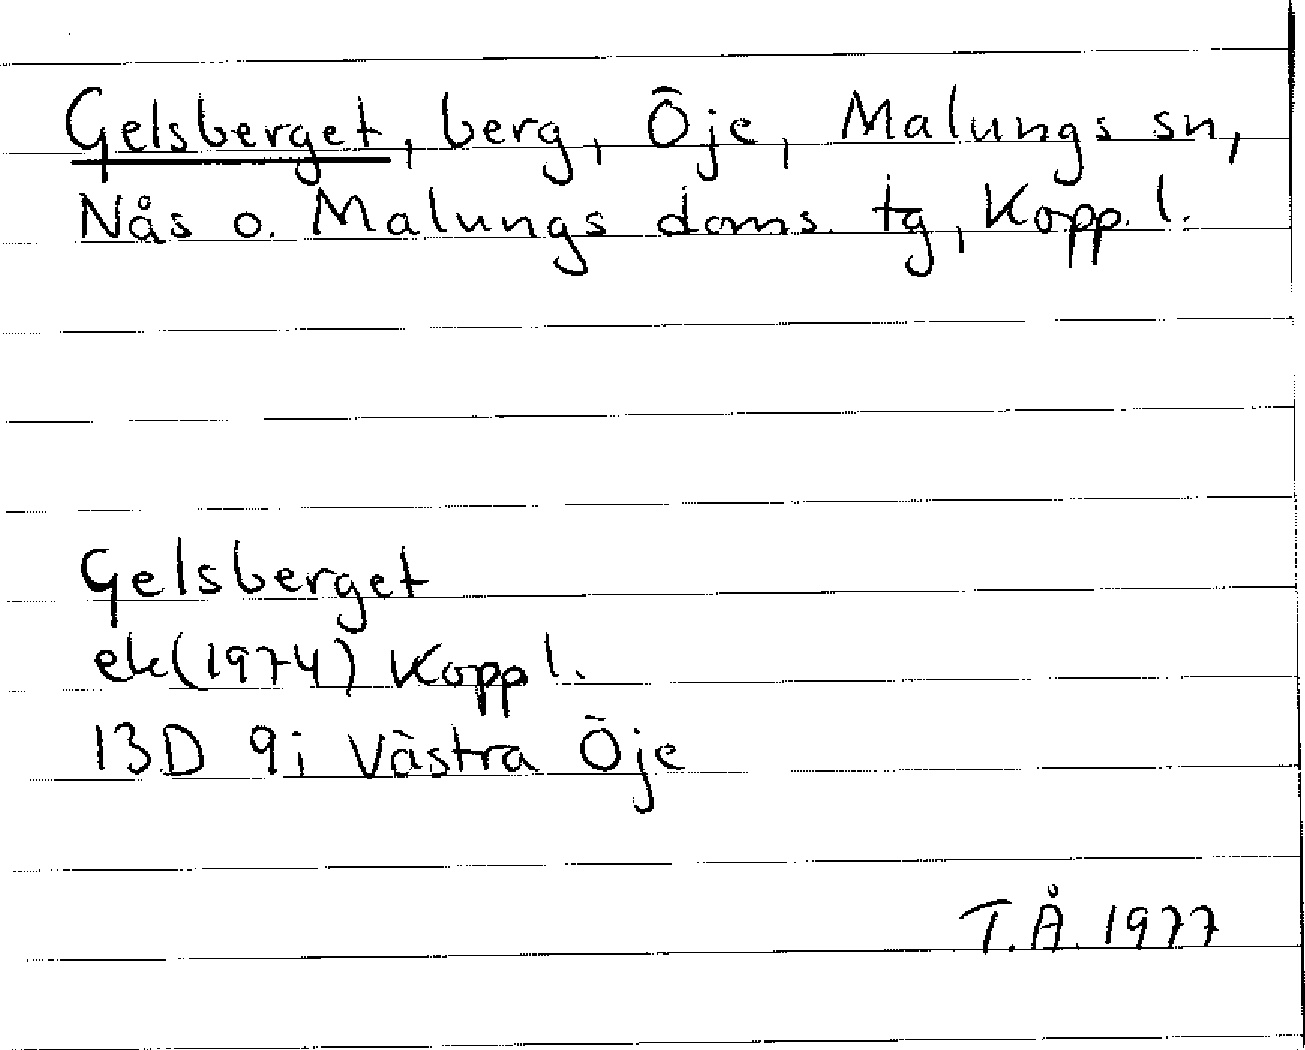 Gelsberget, berg, Öje, Malungs sn,
Nås o. Malungs doms. tg, Kopp. l.
Gelsberget
ek(1974) Kopp l.
13D 9i Västra Öje
T.Å. 1977